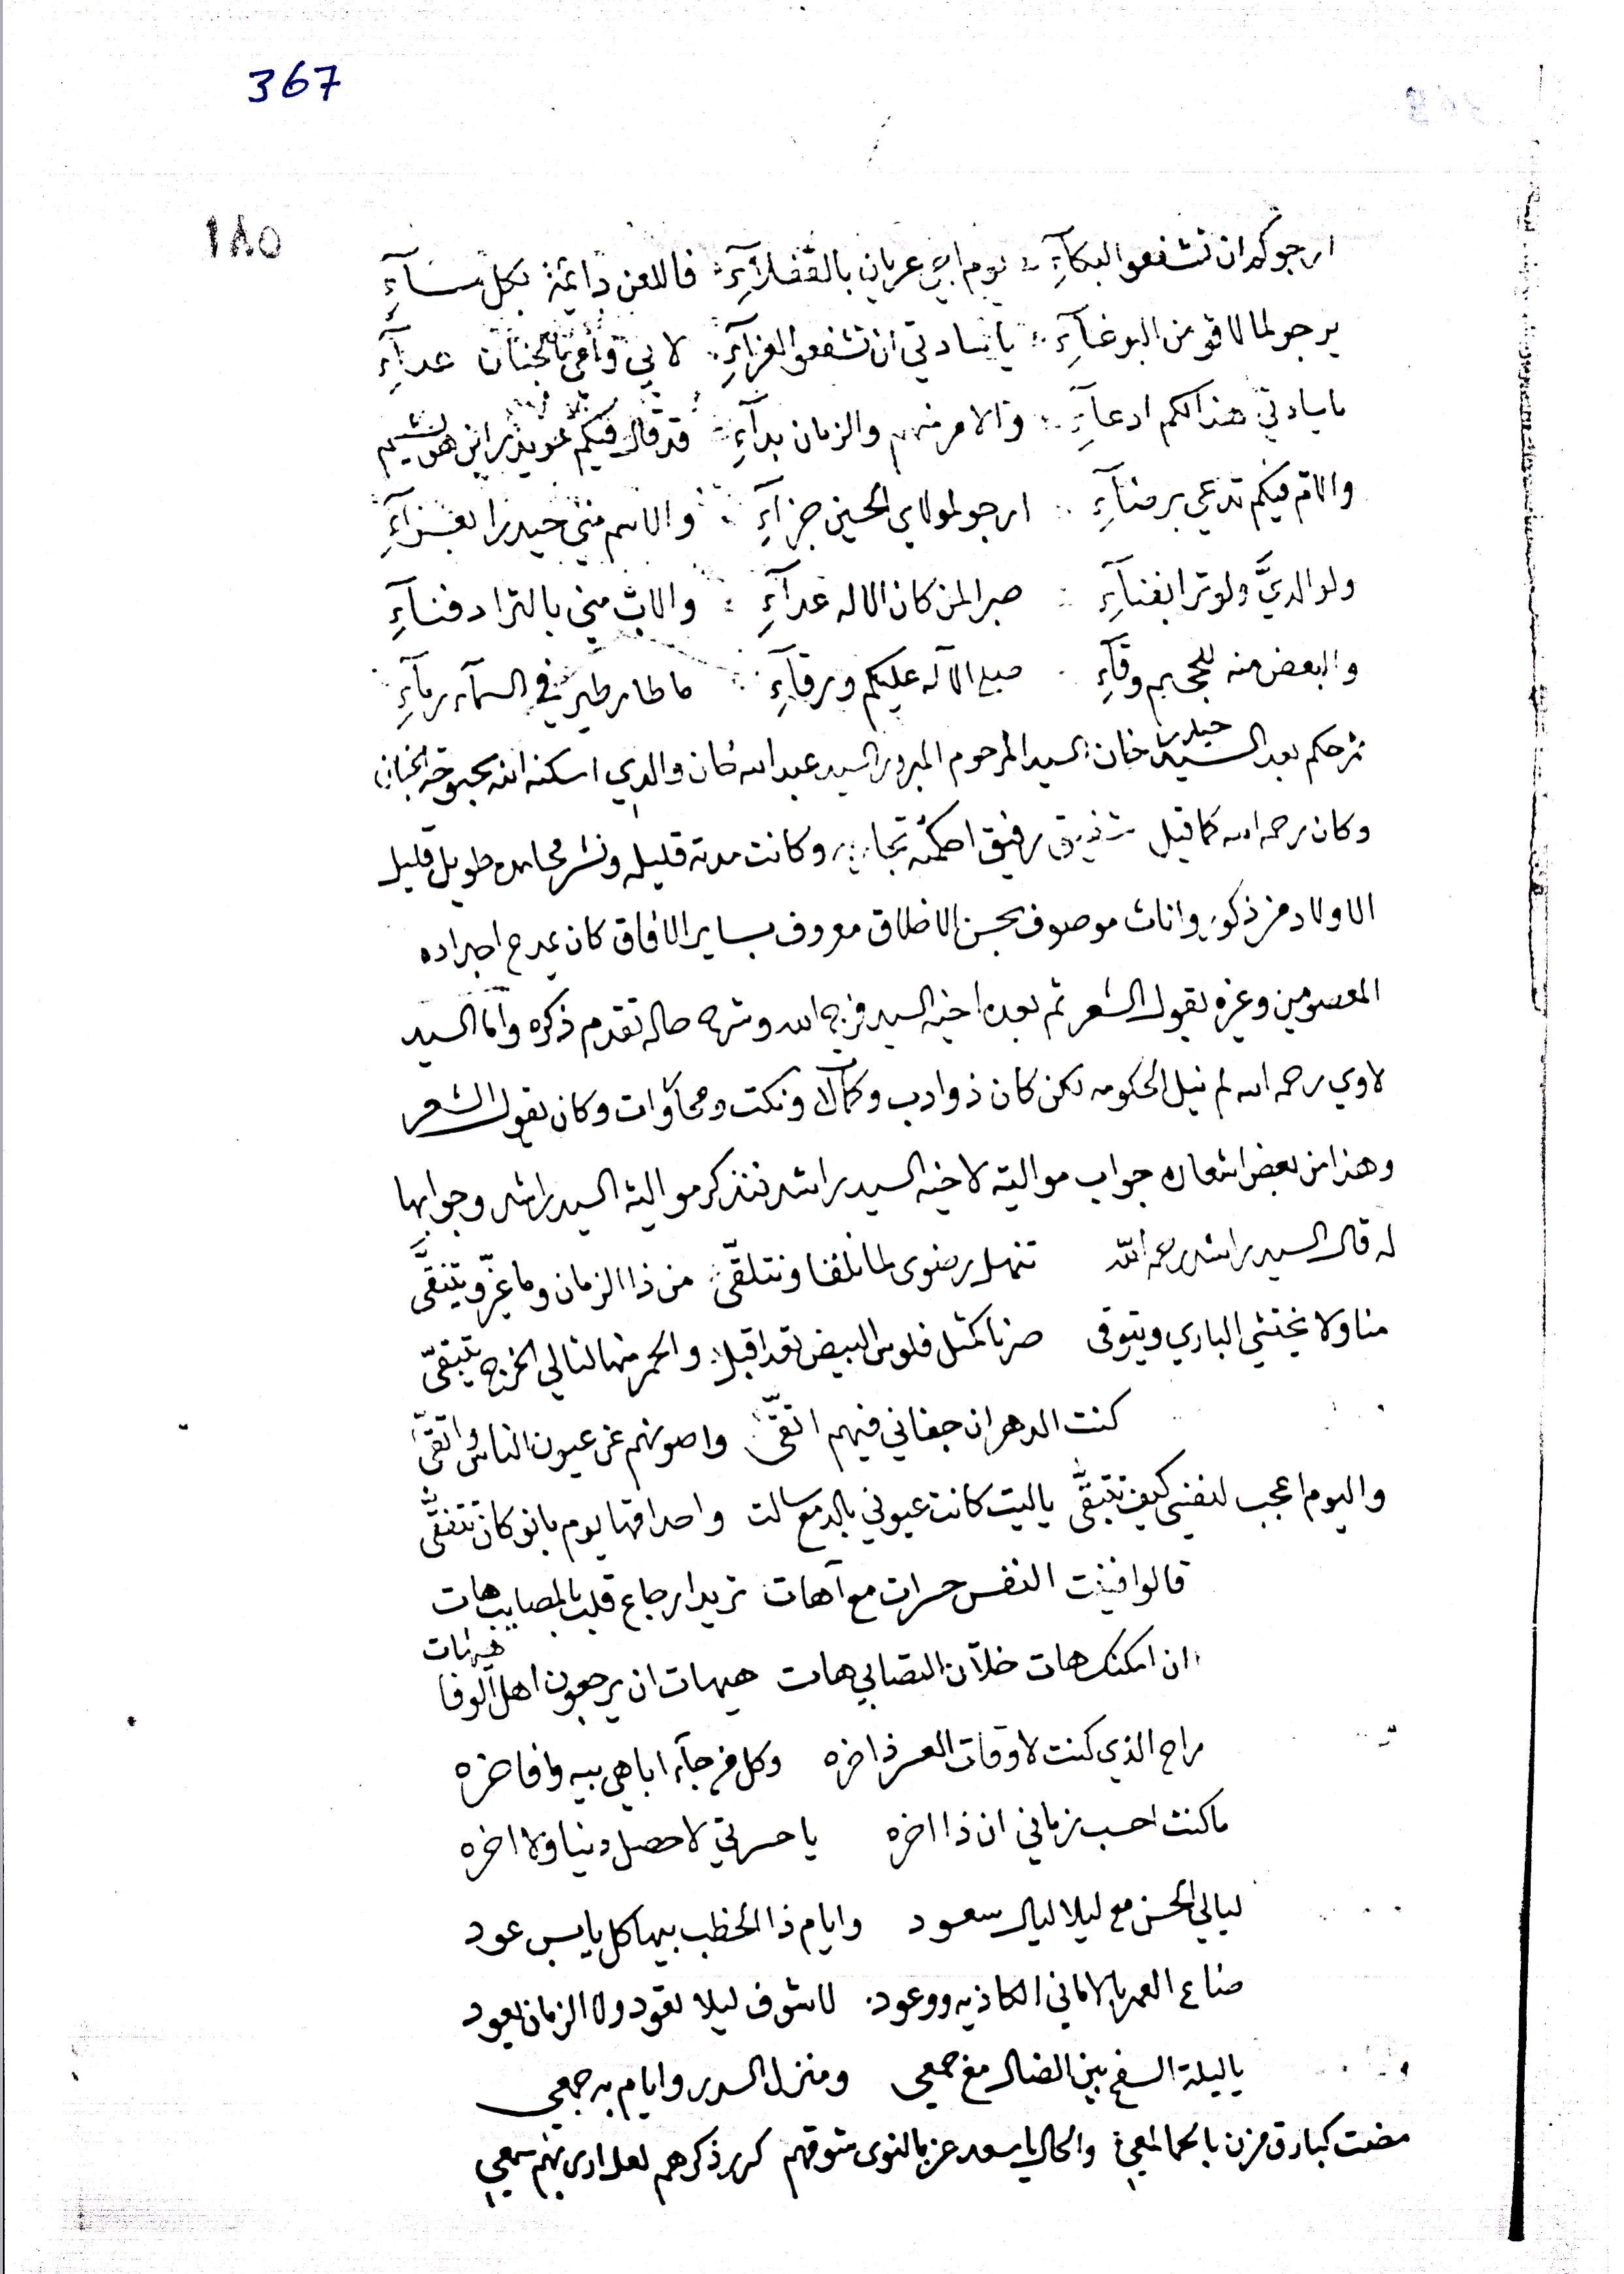 367
١٨٥
ارجوكم ان تشفعوا البكآءِ يوم ابي عريان بالقفلآءِ فاللعن دائمة بكل مسآءِ
يرجو لما لاقو من البوغآءِ يا سادتي ان تشفعوا الغرآءِ لابي وامي بالجنان غدآءِ
ياسادتي هذا لكم ادعآءِ والامر منهم والزمان بدآءِ قد قال فيكم حويدر ابن هوشيم
والام فيكم تدعي برضآءِ ارجو لمولاي الحسين جزآءِ والاسم مني حيدرا بغزآءِ
ولوالديَّ ولو ترا بفنآءِ صبرا لمن كان الاله غدآءِ والاب مني بالترا دفنآءِ
والبعض منه للجحيم وقآءِ صلى الاله عليكم ورقآءِ ما طار طير في السمآء رمآءِ
ثم حكم بعد السيد حيدر خان السيد المرحوم المبرور السيد عبد الله خان والدي اسكنه الله بحبوحة الجنان
وكان رحمه الله كما قيل شفيق رفيق احكمته تجاربه وكانت مدته قليله ونشر محامده طويل قليل
الاولاد من ذكور واناث موصوف بحسن الاخلاق معروف بساير الافاق كان يمدح اجداده
المعصومين وغيره يقول الشعر ثم بعده اخيه السيد فرج الله وشرح حاله تقدم ذكره واما السيد
لاوي رحمه الله لم نيل الحكومه لكن كان ذو ادب وكمالات ونكت ومحاوات وكان يقول الشعر
وهذا من بعض اشعاره جواب مواليته لاخيه السيد راشد فنذكر موالية السيد راشد وجوابها
له قال السيد راشد رحمه الله تنهل رضوى لما نلقا ونتلقّى من ذا الزمان وما غيّرو يتنقَّى
منا ولا يختشي الباري ويتوقى صرنا كمثل فلوس البيض نقدا قبل والحمر منها لتالي الخرج تتبقّى
كنت الدهر ان جفاني فيهم اتقّى واصونهم عن عيون الناس واتقّى
واليوم اعجب لنفسي كيف تتبقَّى ياليت كانت عيوني بالدمع سالت واحداقها يوم بانو كان تتفقَّى
قالوا فنيت النفس حسرات مع آهات تريد ارجاع قلب بالمصايب هات
ان امكنك هات خلان التصابي هات هيهات ان يرجعون اهل الوفا هيهات
راح الذي كنت لاوقات العسر ذاخره وكل من جآء اباهي بيه وافاخره
ما كنت احسب زماني ان ذا اخره يا حسرتي لا حصل دنيا ولا اخره
ليالي الحسن مع ليلا ليال سعود وايام ذا الخطب بيها كل يابس عود
ضاع العمر بالاماني الكاذبه ووعود لا شوف ليلا تعود ولا الزمان يعود
يا ليلة السفح بين الضال مع جمعي ومنزل السدر وايام به جمعي
مضت كبارق مزن بالحما لمعي والحال يا سعد عز بالنوى شوقهم كرر ذكرهم لعل ادري بهم سمعي